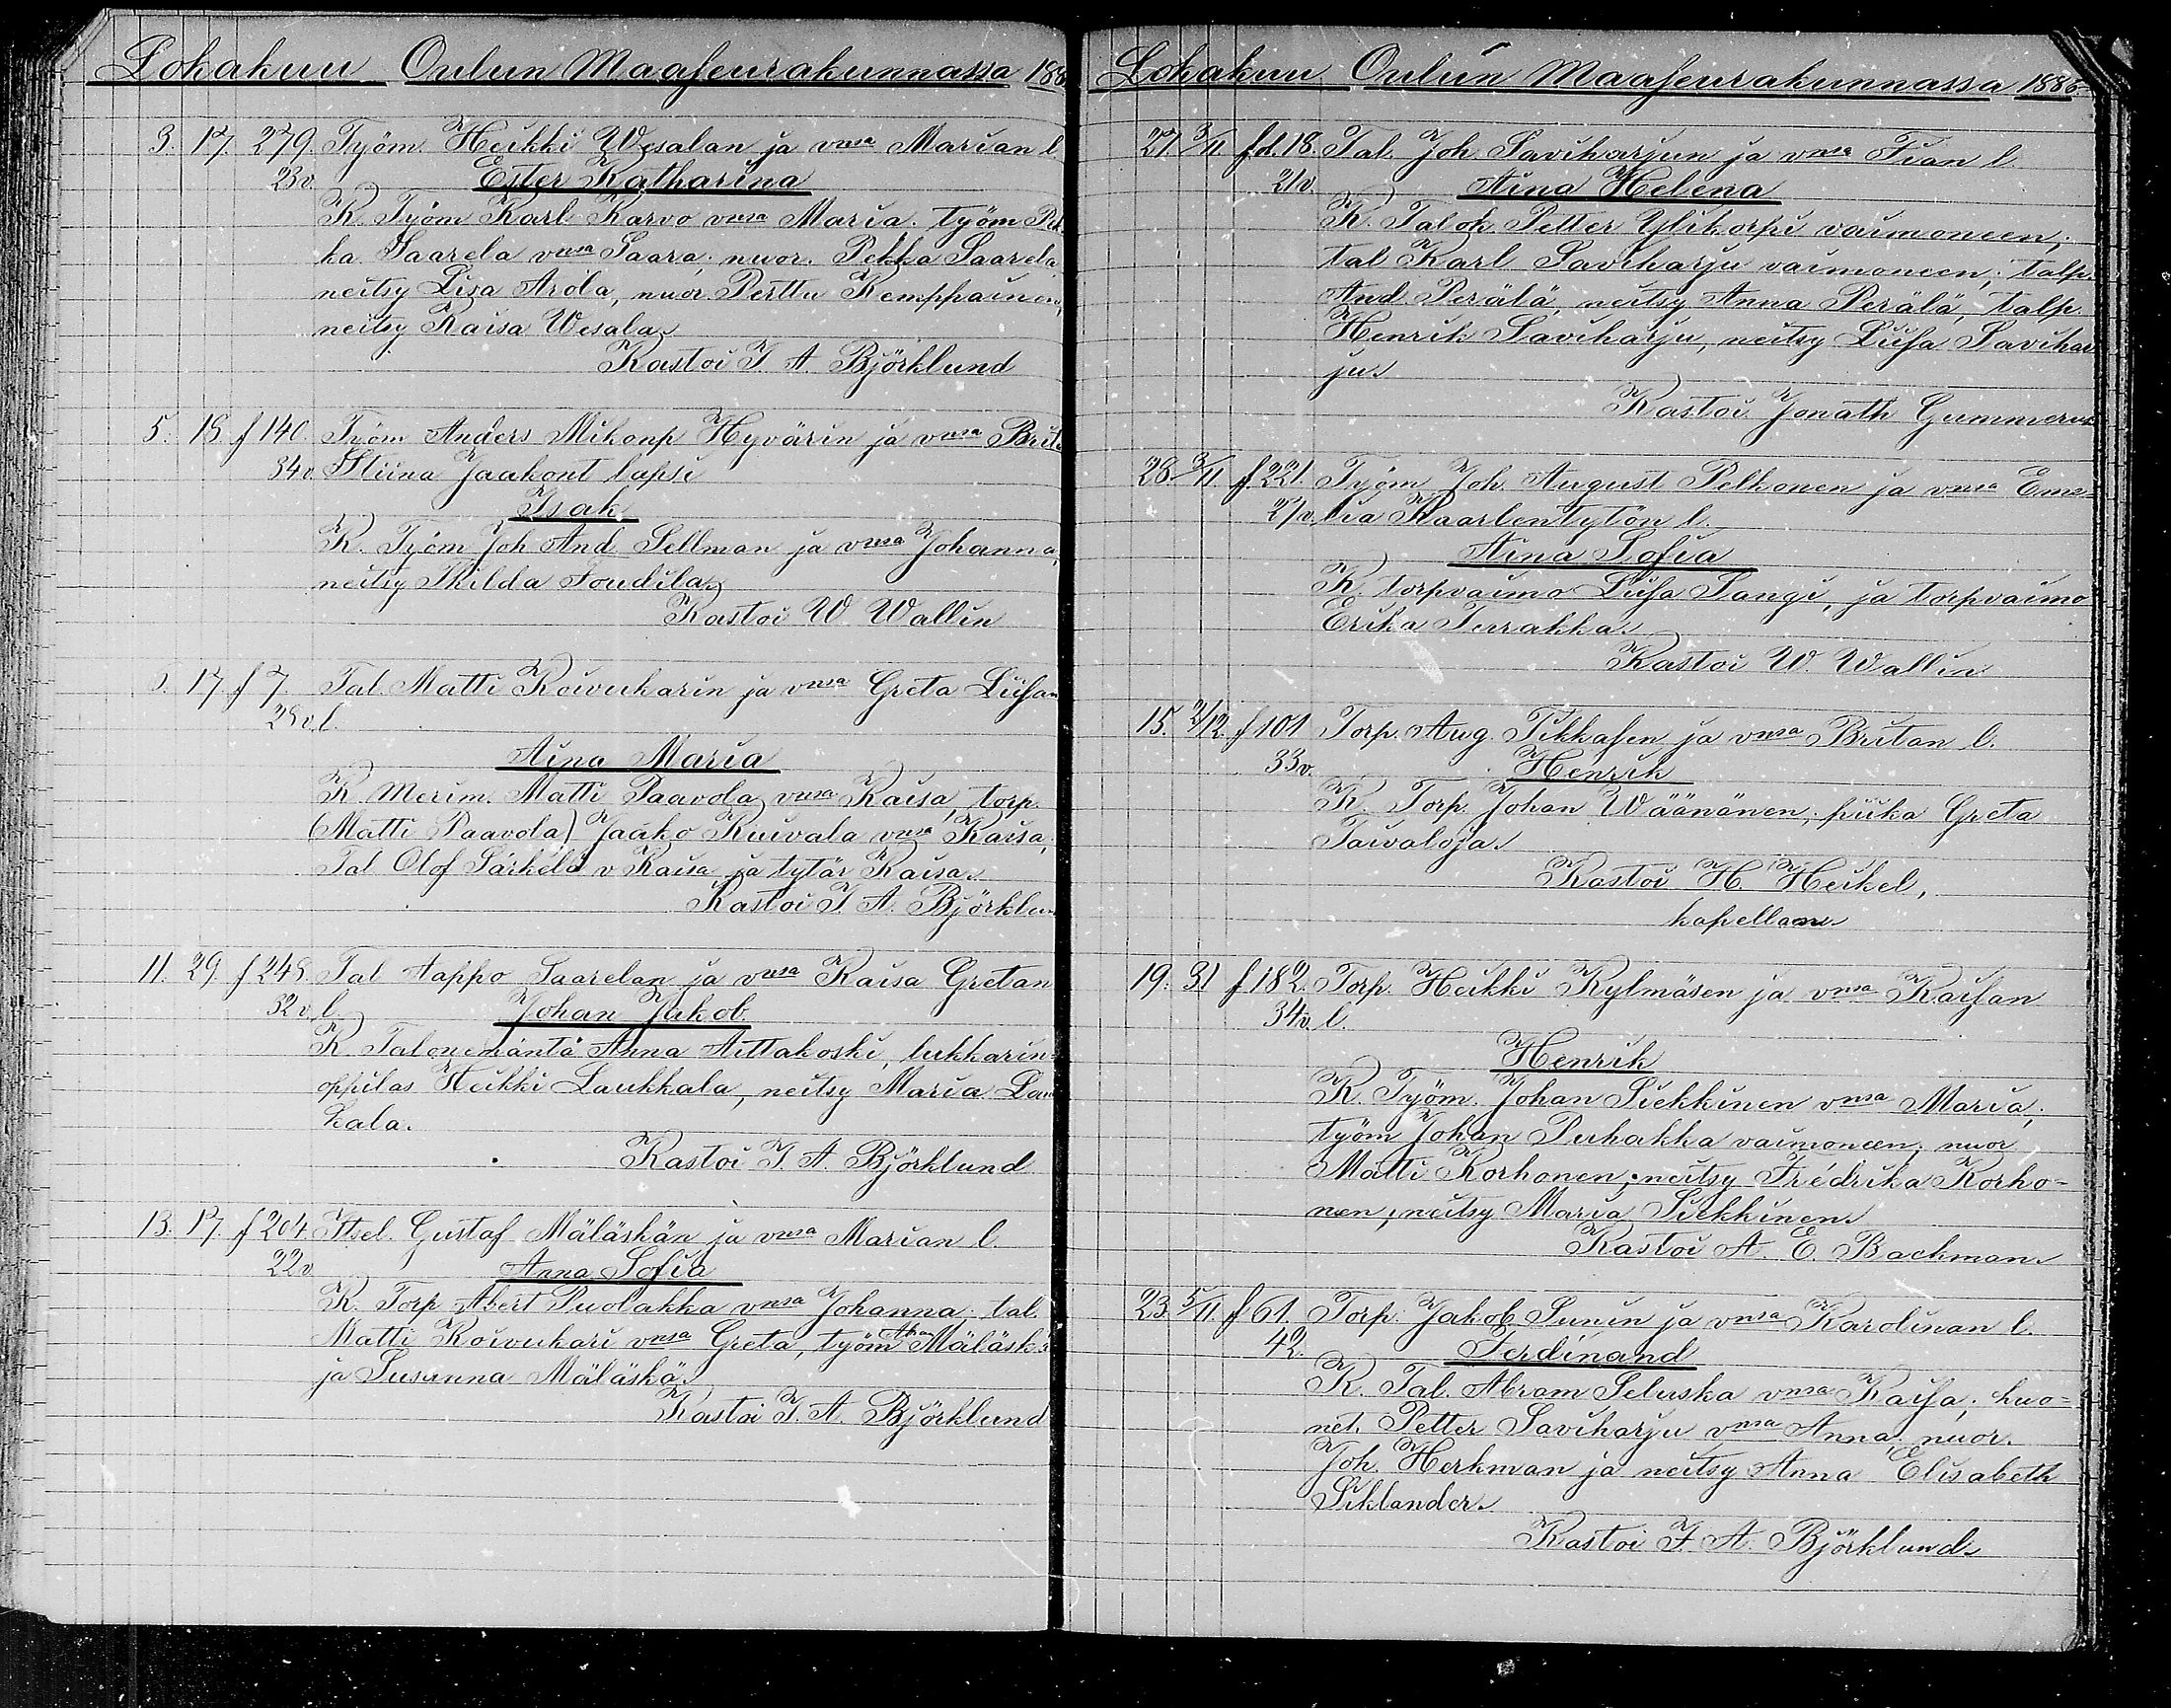 Lokakuu Oulun Maaseurakunnassa 188
3. 17. 279. Työm. Heikki Wesalan ja vmsa Marian l.
23 v. Ester Katharina
K. Työm Karl Karvo vmsa Maria, työm Pek
ka Saarela vmsa Saara; nuor. Pekka Saarela,
neitsy Lisa Arola, nuor. Perttu Kemppainen,
neitsy Kaisa Wesala.
Kastoi J. A. Björklund
5. 15. f 140. Työm Anders Mikonp Hyvärin ja vmsa Brita
34 v. Stiina Jaakont lapsi
Isak
K. Työm Joh And Sellman ja vmsa Johanna,
neitsy Hilda Loudila.
Kastoi W. Wallin
17. f 7. Tal. Matti Koivukarin ja vmsa Greta Liisan
29 v. l.
Aina Maria
K. Merim. Matti Paavola vmsa Kaisa, torp.
(Matti Paavola) Jaako Kuivala vmsa Kaisa,
Tal Olof Särkelä v Kaisa ja tytär Kaisa.
Kastoi J. A. Björklun
11. 29. f 249. Tal Aappo Saarelan ja vmsa Kaisa Gretan
32 v. l. Johan Jakob.
K. Talonemäntä Anna Aittakoski, lukkarin=
oppilas Heikki Laukkala, neitsy Maria Lau
kala.
Kastoi J. A. Björklund
13. 17. f 204 Itsel. Gustaf Mäläskän ja vmsa Marian l.
22 v Anna Sofia
K. Torp Abert Puolakka vmsa Johanna, tal.
Matti Koivukari vmsa Greta, työm Mäläskä
ja Susanna Mäläskä.
Kastoi J. A. Björklund
Lokakuu Oulun Maaseurakunnassa 1886
27. 3/11 f.d. 18. Tal. Joh. Saviharjun ja vmsa Fian l.
21 v. Aina Helena
K. Talok. Petter Ylikorpi vaimoneen;
tal Karl Saviharju vaimoneen; talp.
And Perälä, neitsy Anna Perälä, talp.
Henrik Saviharju, neitsy Liisa Savihar
ju.
Kastoi Jonath Gummerus
28. 3/11. f. 221. Työm Joh. August Pelkonen ja vmsa Eme=
21 v. lia Kaarlentytön l.
Aina Sofia
K. torpvaimo Liisa Sangi, ja torpvaimo
Erika Turrakka.
Kastoi W. Wallin
15. 2/12. f 101 Torp. Aug. Tikkasen ja vmsa Britan l.
33 v. Henrik
K. Torp. Johan Wäänänen; piika Greta
Taivaloja.
Kastoi H. Heikel,
kapellani.
19. 31 f 182. Torp. Heikki Kylmäsen ja vmsa Kaisan
34 v. l.
Henrik
K. Työm. Johan Siekkinen vmsa Maria;
työm Johan Puhakka vaimoneen, nuor
Matti Korhonen, neitsy Fredrika Korho=
nen, neitsy Maria Siekkinen.
Kastoi A. E. Backman.
23. 5/11 f 61. Torp. Jakob Sunin ja vmsa Karolinan l.
42. Ferdinand
K. Tal. Abram Seluska vmsa Kaisa; huo=
net. Petter Saviharju vmsa Anna, nuor.
Joh. Herkman ja neitsy Anna Elisabeth
Siklander.
Kastoi J. A. Björklund.